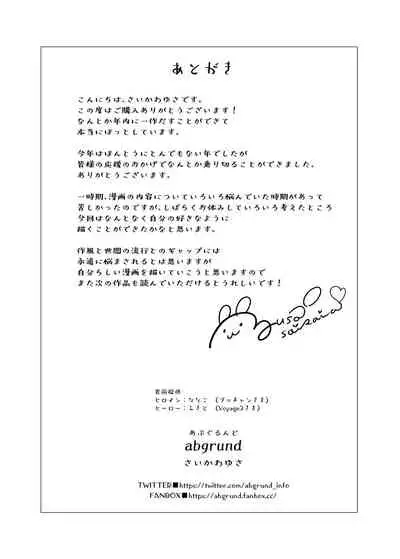 あとがき
こんにちは、さいかわゆさです。
この度はご購入ありがとうございます！
なんとか年内に一作だすことができて
本当にほっとしています。
今年はほんとうにとんでもない年でしたが
皆様の応援のおかげでなんとか乗り切ることができました。
ありがとうございます。
一時期、漫画の内容についていろいろ悩んでいた時期があって
苦しかったのですが、しばらくお休みしていろいろ考えたところ
今回はなんとなく自分の好きなように
描くことができたかなと思います。
作風と世間の流行とのギャップには
永遠に悩まされるとは思いますが
自分らしい漫画を描いていこうと思いますので
また次の作品も読んでいただけるとうれしいです！
yusa
saikawa
ヒロイン：ななこ
ヒーロー：
あぶぐるんど
abgrund
さいかわゆさ
TWITTER■https://twitter.com/abgrund_info
FANBOX■https://abgrund.fanbox.cc/